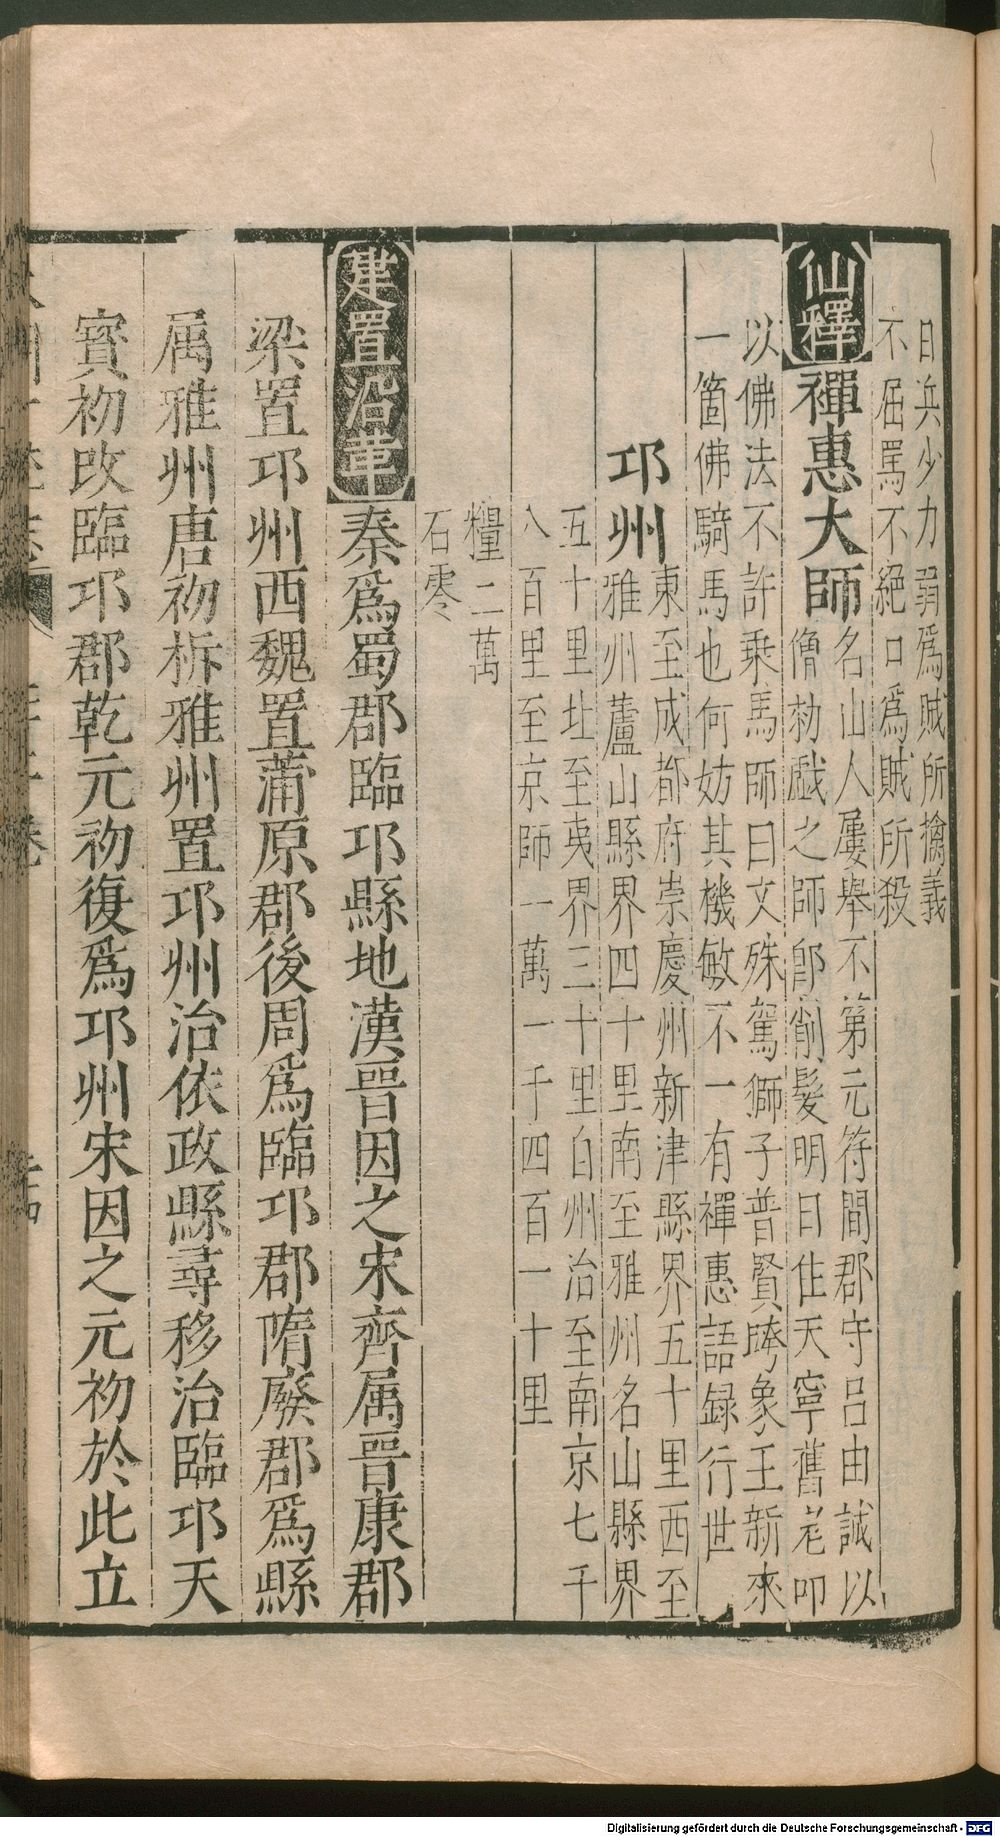 曰兵少力弱爲賊所擒義
不屈罵不絕口爲賊所殺
仙釋 禪惠大師 名山人屢舉不第元符間郡守呂由誠以
僧勑戲之師卽削髮明日住天寧舊老叩
以佛法不許乗馬師曰文殊駕獅子普賢跨象王新來
一箇佛騎馬也何妨其機敏不一有禪惠語録行世
邛州 東至成都府崇慶州新津縣界五十里西至
雅州蘆山縣界四十里南至雅州名山縣界
五十里北至夷界三十里自州治至南京七千
八百里至京師一萬一千四百一十里
糧二萬
石零
建置沿革 秦爲蜀郡臨邛縣地漢晋因之宋齊属晋康郡
梁置邛州西魏置蒲原郡後周爲臨邛郡隋廢郡爲縣
属雅州唐初柝雅州置邛州治依政縣尋移治臨邛天
寳初改臨邛郡乾元初復爲邛州宋因之元初於此立
Digitalisierung gefördert durch die Deutsche Forschungsgemeinschaft - DFG